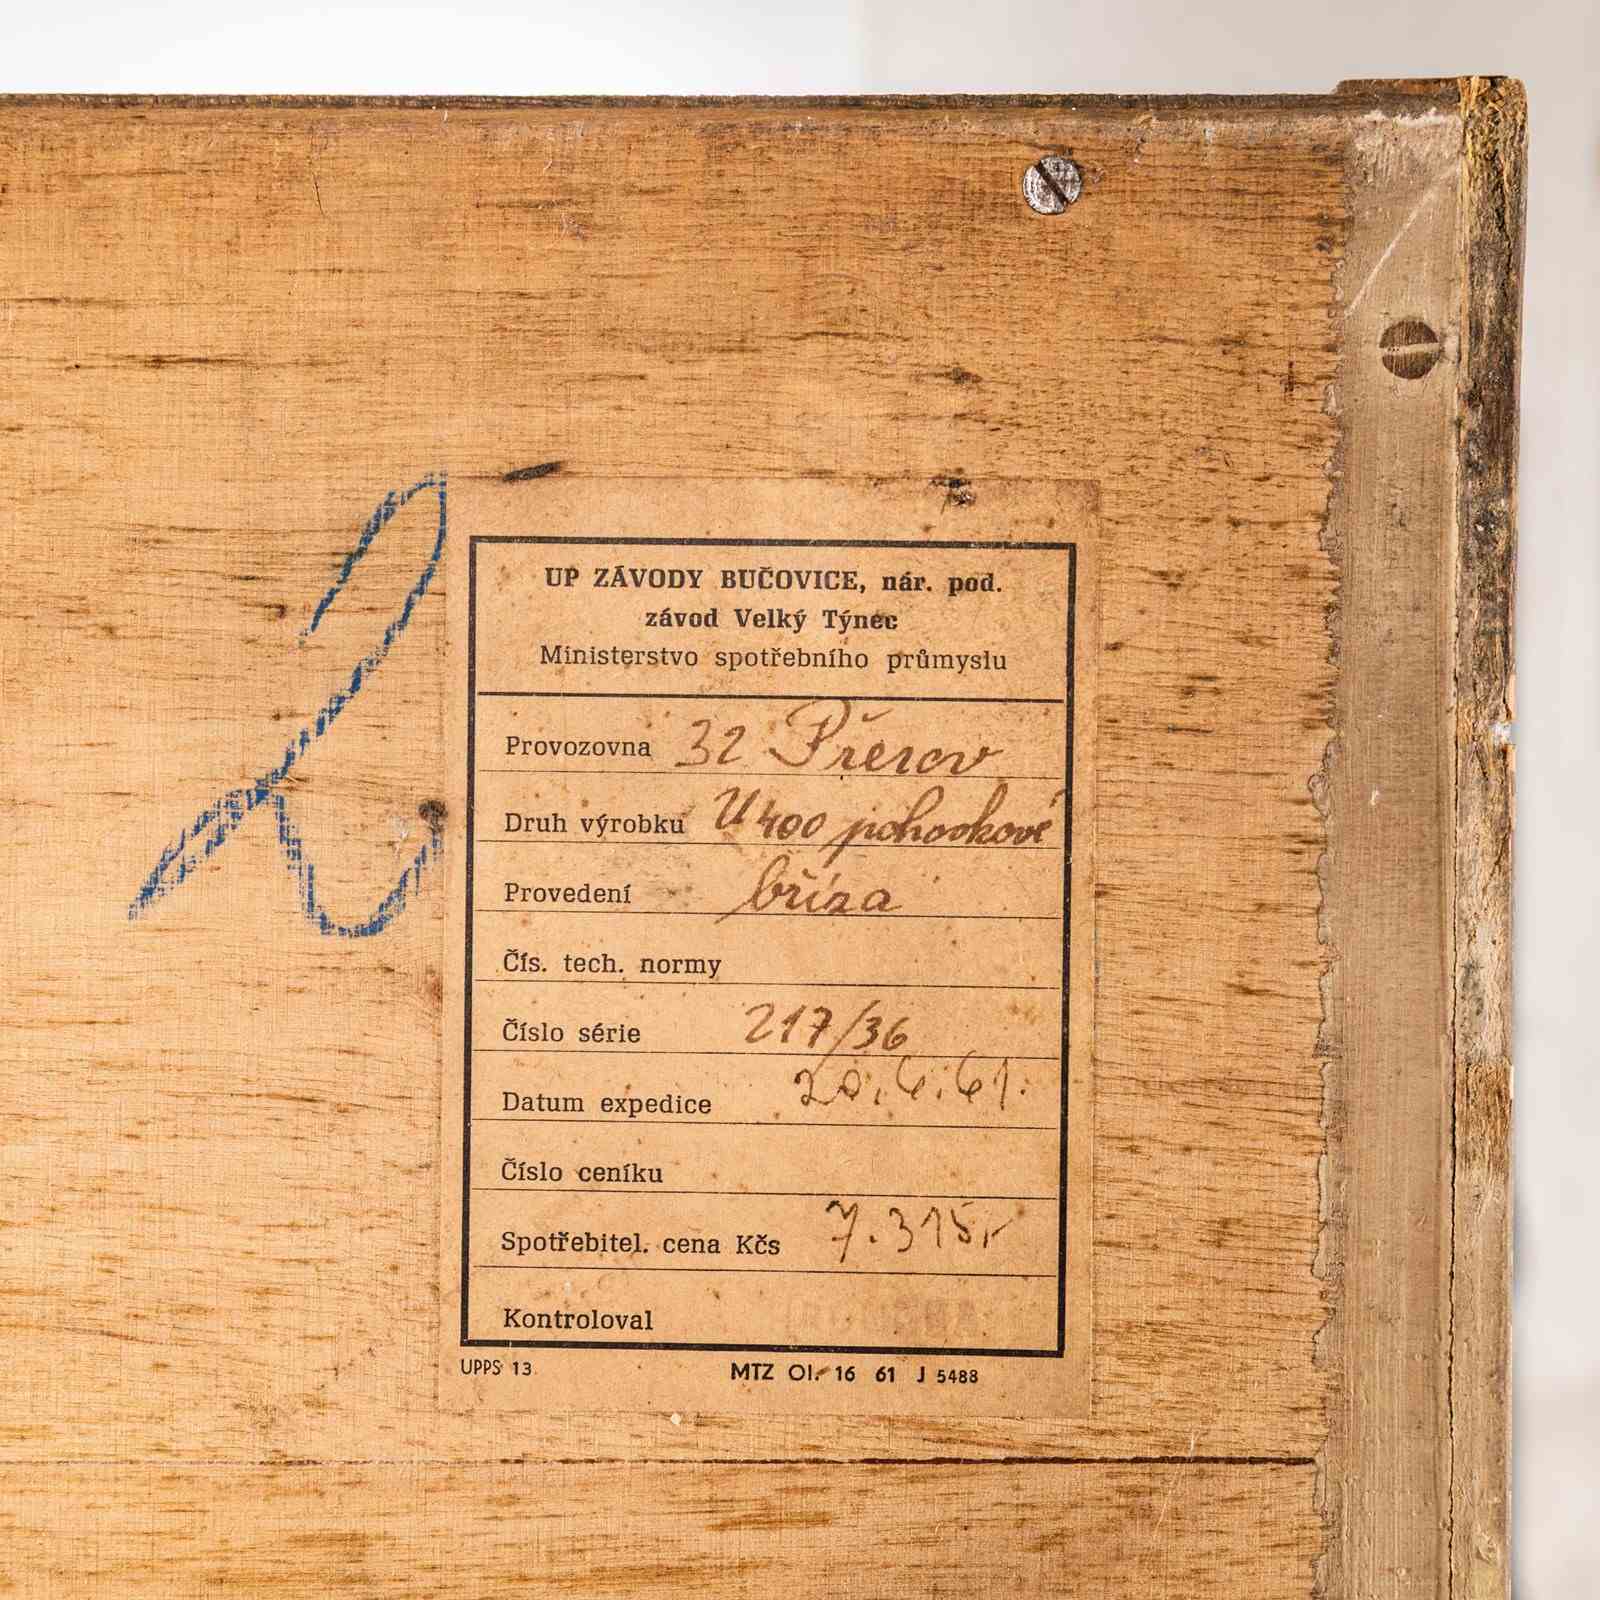 UP ZÁVODY BUČOVICE, nár. pod.
závod Velký Týnec
Ministerstvo spotřebního průmyslu
Provozovna 32 Přerov
Druh výrobku U 400 pohovkové
Provedení bříza
Čís. tech. normy
Číslo série 217/36
Datum expedice 20.6.61.
Číslo ceníku
Spotřebitel. cena Kčs 7.315,-
Kontroloval
UPPS 13 MTZ Ol. 16 61 J 5488